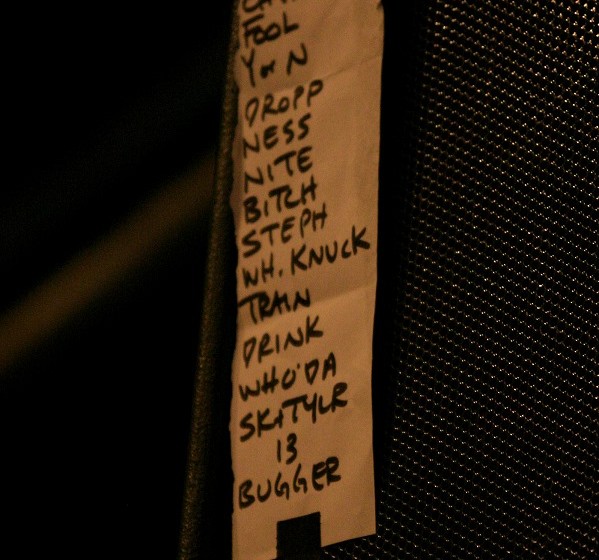 FOOL
Y or N
DROPP
NESS
NITE
BITCH
STEPH
WH. KNUCK
TRAIN
DRINK
WHO'DA
SK+TYLR
13
BUGGER